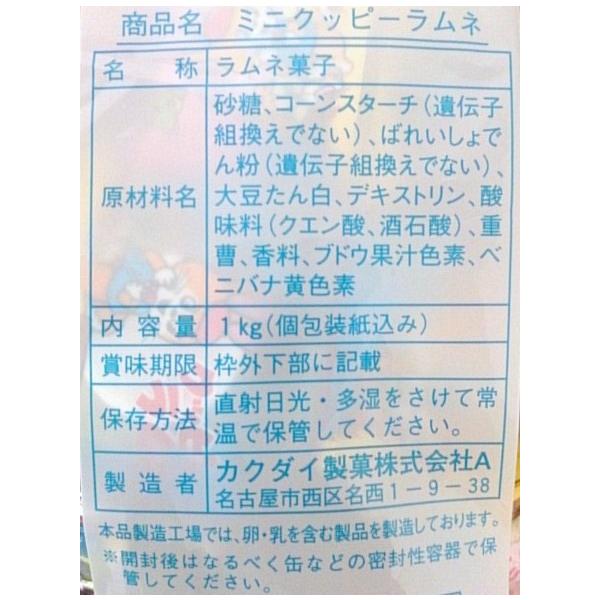 商品名 ミニクッピーラムネ
名称 ラムネ菓子
原材料名
砂糖、コーンスターチ(遺伝子
組換えでない)、ばれいしょで
ん粉(遺伝子組換えでない)、
大豆たん白、デキストリン、酸
味料(クエン酸、酒石酸)、重
曹、香料、ブドウ果汁色素、ベ
ニバナ黄色素
内容量 1kg(個包装紙込み)
賞味期限 枠外下部に記載
保存方法
直射日光・多湿をさけて常
温で保管してください。
製造者
カクダイ製菓株式会社A
名古屋市西区名西1-9-38
本品製造工場では、卵・乳を含む製品を製造しております。
※開封後はなるべく缶などの密封性容器で保
管してください。